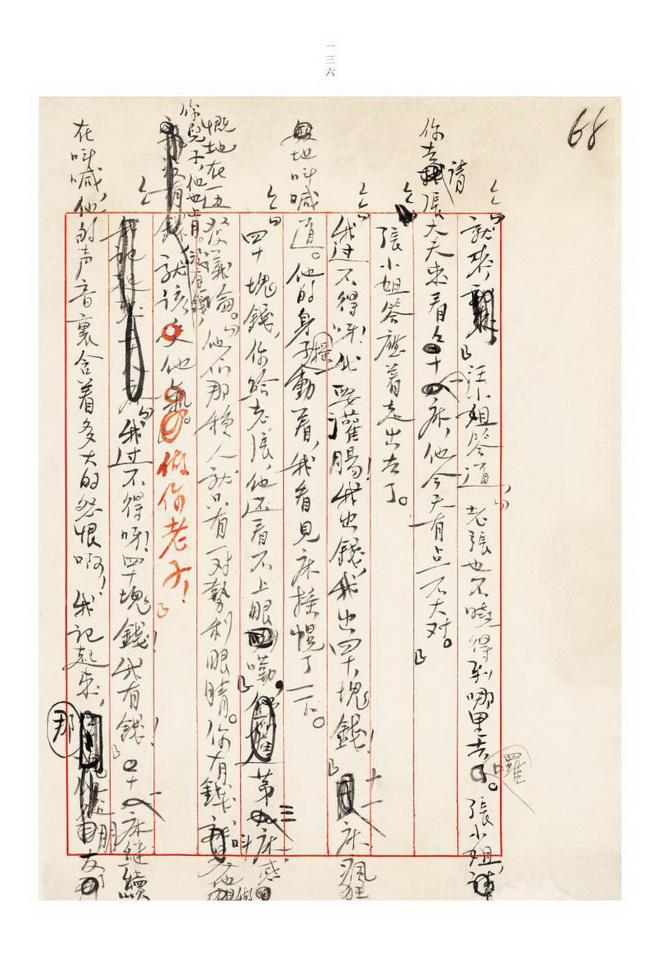 一三六
68
「就來，」汪小姐答道，「老張也不曉得到哪里去了囉。張小姐，
你去請張大夫來看看十一床，他今天有点不大对。」
張小姐答應着走出去了。
「我过不得呀！我要灌腸！我出錢，我出四十塊錢！」十一床瘋狂
地叫喊道。他的身子搖動着，我看見床搖幌了一下。
「四十塊錢，你給老張，他还看不上眼嘞，」第三床感
慨地在一边發議論。「他們那種人就只有一对勢利眼睛。你有錢，叫他做
你兒子，他也肯。沒有錢，就該受他氣。做你老子！」
「我过不得呀！四十塊錢！我有錢！」十一床继續
在叫喊，他的声音裏含着多大的怨恨啊，我記起來，那朋友